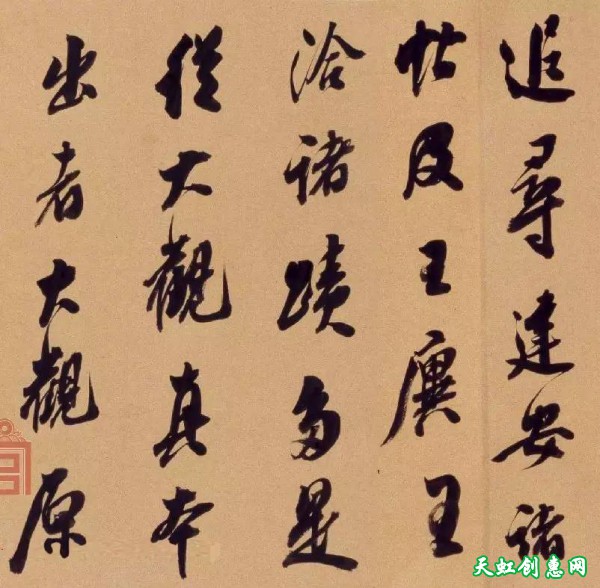 追尋建安諸
帖及王廙王
洽諸蹟多是
從大觀真本
出者大觀原
天虹创惠网